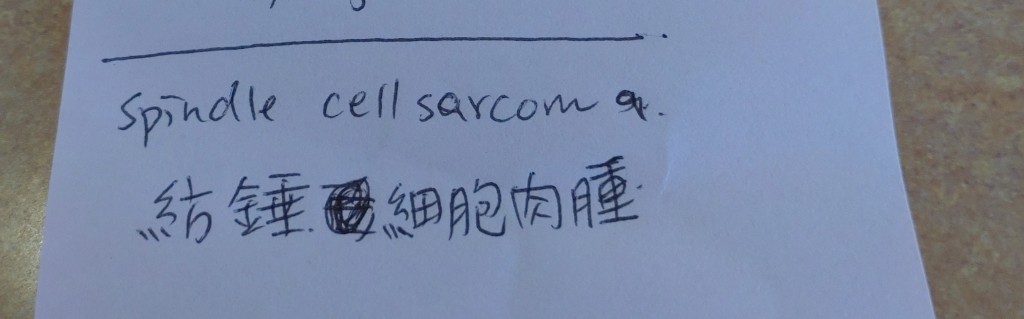 spindle cell sarcoma.
紡錘細胞肉腫